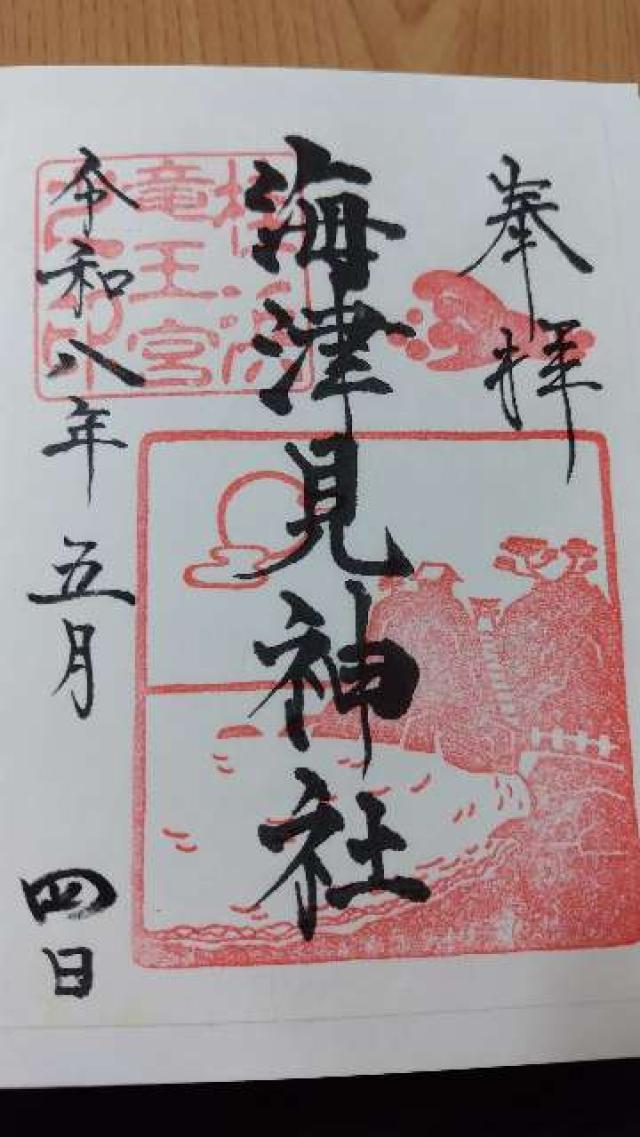 奉拝
海津見神社
竜王宮
令和八年五月四日